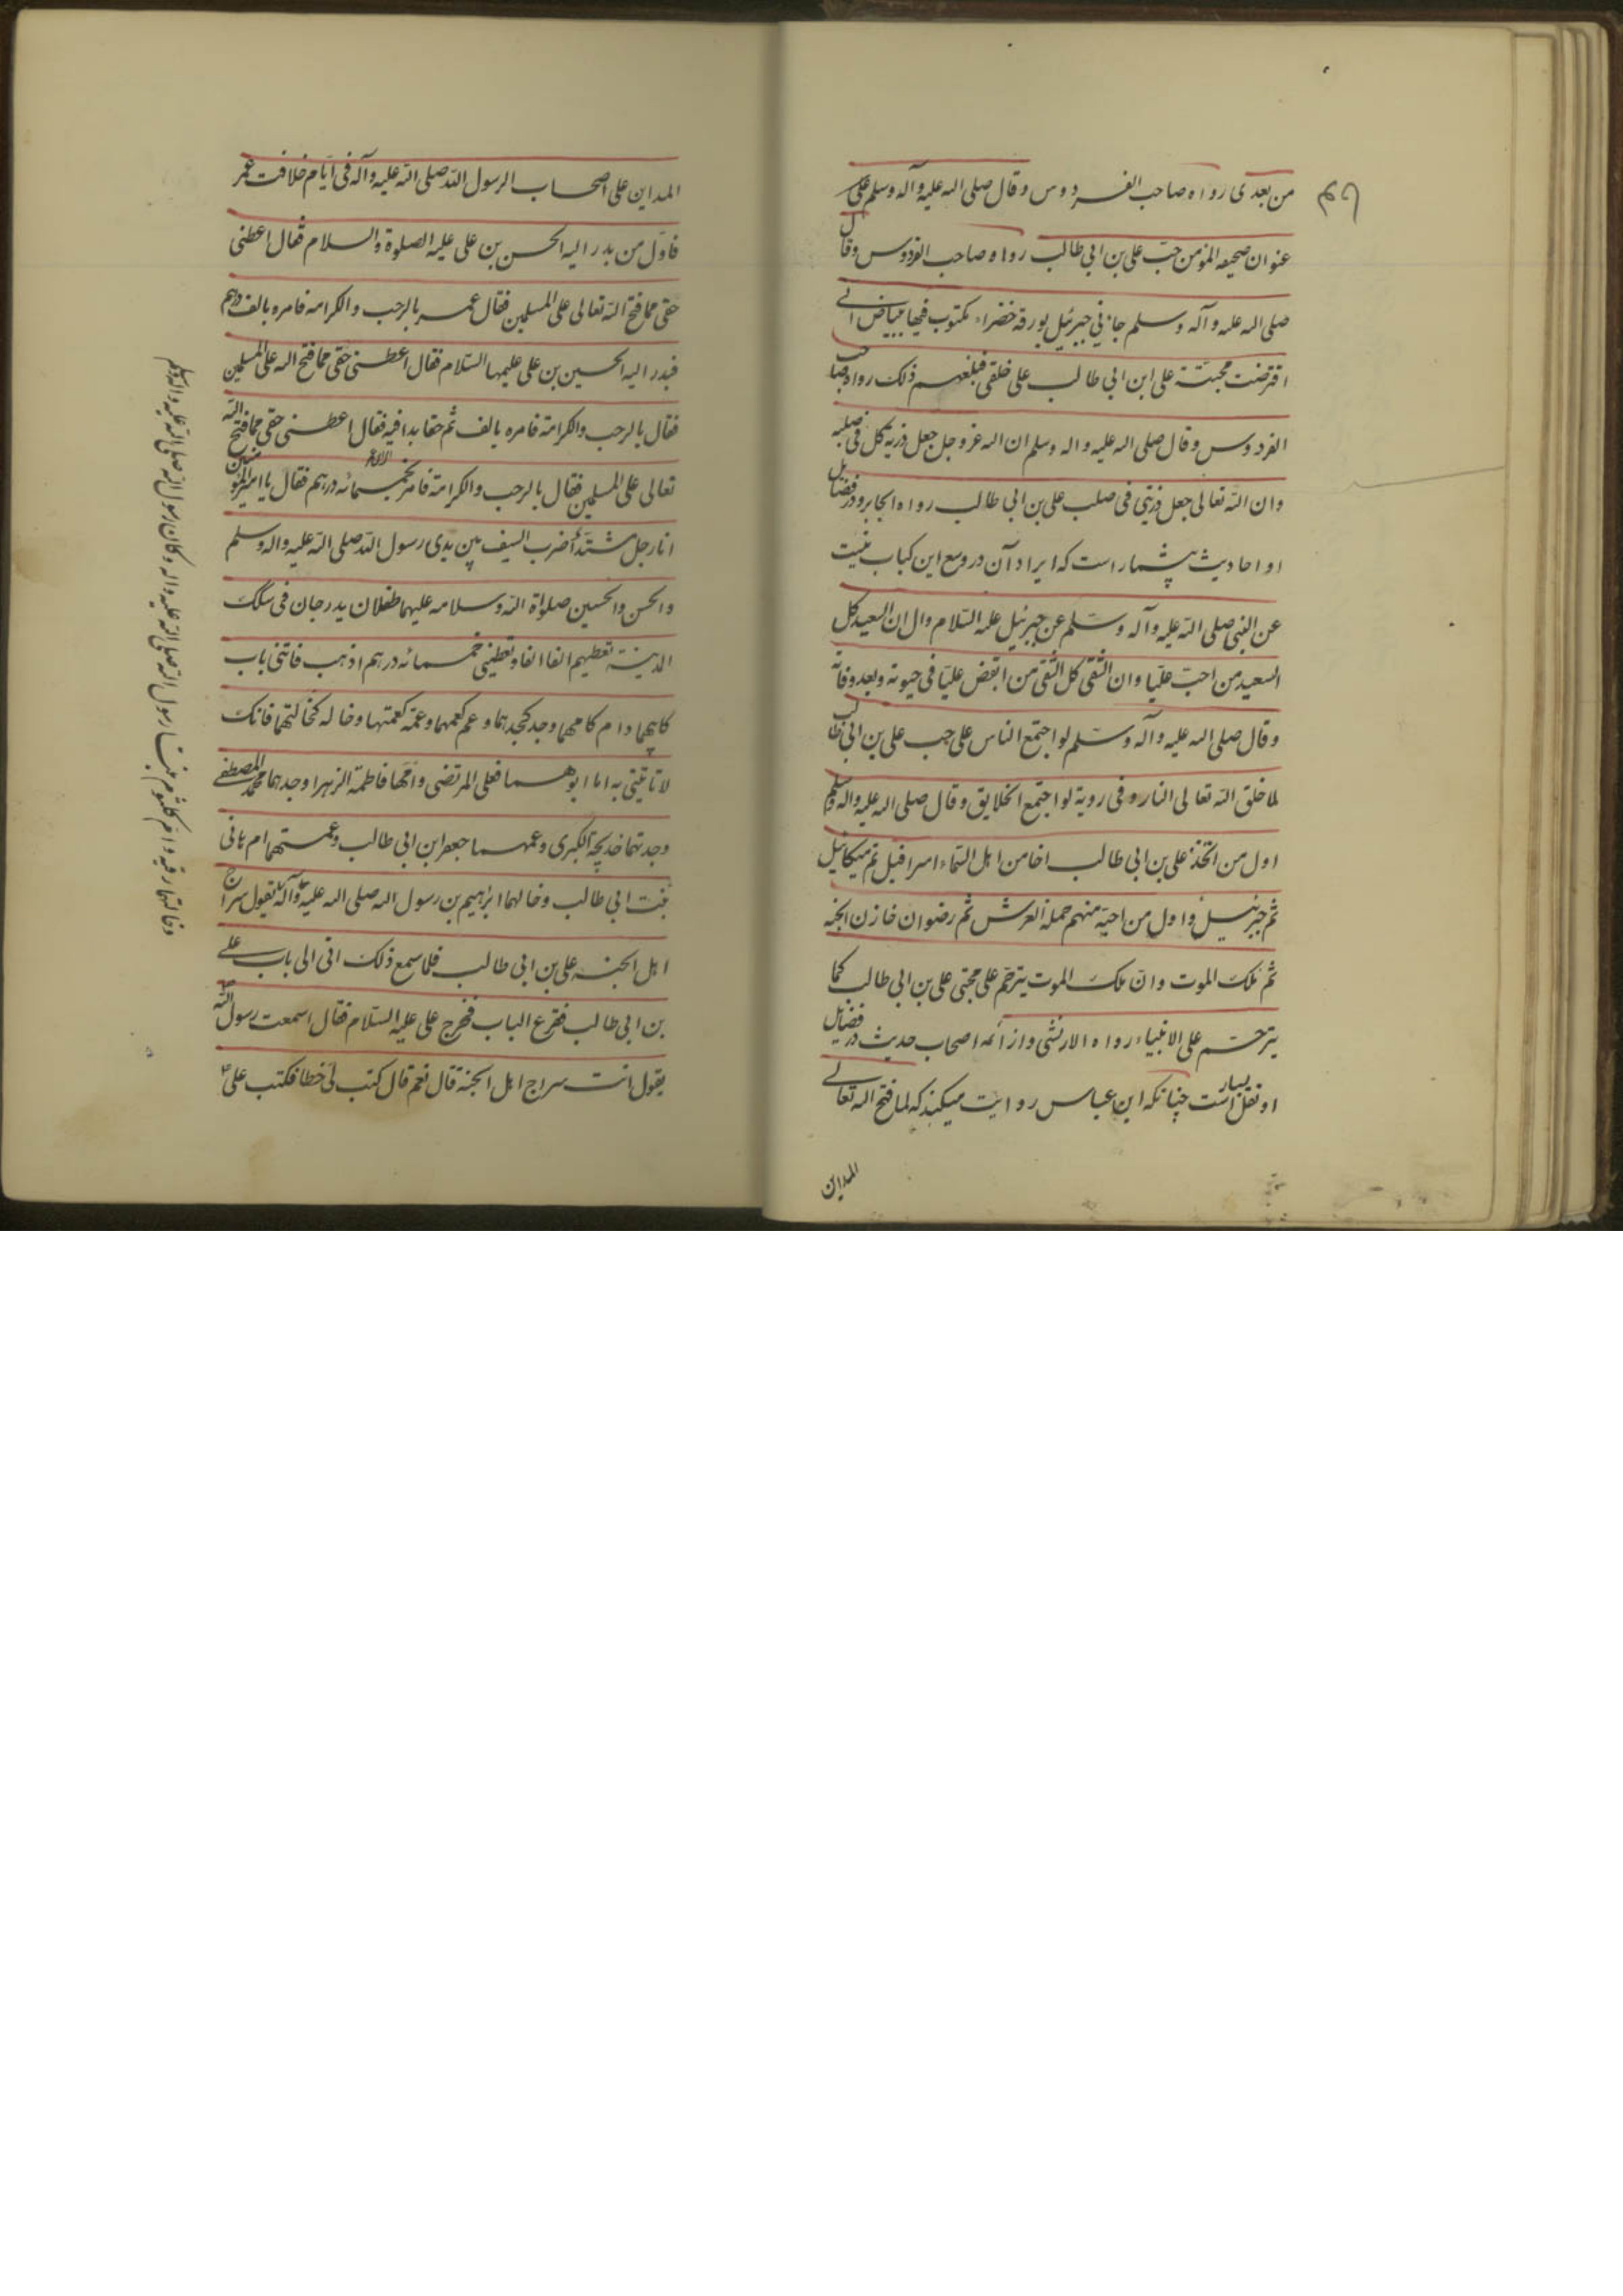 من بعدی رواه صاحب الفردوس وقال صلی الله علیه وآله وسلم علی
عنوان صحیفه المؤمن حبّ علی بن ابی طالب رواه صاحب الفردوس وقال
صلی الله علیه وآله وسلم جاءنی جبرئیل بورقة خضراء مکتوب فیها ببیاض انی
افترضت محبّة علی ابن ابی طالب علی خلقی فبلغهم ذلک رواه صاحب
الفردوس وقال صلی الله علیه واله وسلم ان الله عز وجل جعل ذریة کل فی صلبه
وان الله تعالی جعل ذریتی فی صلب علی بن ابی طالب رواه الجابر ودر فضایل
او احادیث بیشمار است که ایراد آن در وسع این کتاب نیست
عن النبی صلی الله علیه وآله وسلم عن جبرئیل علیه السلام وال ان السعید کل
السعید من احبّ علیّا وان الشقی کل الشقی من ابغض علیّا فی حیوته وبعد وفاته
وقال صلی الله علیه وآله وسلم لو اجتمع الناس علی حب علی بن ابی طالب
لما خلق الله تعالی النار وفی روایة لو اجتمع الخلایق وقال صلی الله علیه واله وسلم
اول من اتخذ علی بن ابی طالب اخا من اهل السماء اسرافیل ثم میکائیل
ثم جبرئیل واول من احبّه منهم حملة العرش ثم رضوان خازن الجنه
ثم ملک الموت وانّ ملک الموت یترحّم علی محبّی علی بن ابی طالب کما
یترحّم علی الانبیاء رواه و از ائمه اصحاب حدیث در فضایل
او نقل بسیار است چنانکه ابن عباس روایت میکند که لما فتح الله تعالی
المداین
المداین علی اصحاب الرسول الله صلی الله علیه وآله فی ایّام خلافت عمر
فاوّل من بدر الیه الحسن بن علی علیه الصلوة والسلام فقال اعطنی
حقی مما فتح الله تعالی علی المسلمین فقال عمر بالرحب والکرامه فامره بالف درهم
فبدر الیه الحسین بن علی علیهما السّلام فقال اعطنی حقی مما فتح الله علی المسلمین
فقال بالرحب والکرامة فامره بالف ثم فقال اعطنی حقی مما فتح الله
تعالی علی المسلمین فقال بالرحب والکرامة فامر بخمسمائه درهم فقال یا امیر المؤمنین
انا رجل مشتدّ أضرب السیف بین یدی رسول الله صلی الله علیه واله وسلم
والحسن والحسین صلواة الله وسلامه علیهما طفلان یدرجان فی سکک
المدینة تعطیهم الفا الفا وتعطینی خمسمائه درهم اذهب فاتنی باب
کابیهما وام کامهما وجد کجدهما وعم کعمهما وعمّة کعمتهما وخاله کخالتهما فانک
لا تاتینی به اما ابوهما فعلی المرتضی وامّهما فاطمة الزهرا وجدهما محمد المصطفی
وجدتهما خدیجة الکبری وعمهما جعفر ابن ابی طالب وعمتهما ام هانی
بنت ابی طالب وخالهما ابراهیم بن رسول الله صلی الله علیه وآله یقول سراج
اهل الجنة علی بن ابی طالب فلما سمع ذلک اتی الی باب علی
بن ابی طالب فقرع الباب فخرج علی علیه السّلام فقال اسمعت رسول الله
یقول انت سراج اهل الجنة قال نعم قال کتب لی خطا فکتب علی
وخالتهما رقیه وام کلثوم بنتا رسول الله صلی الله علیه واله